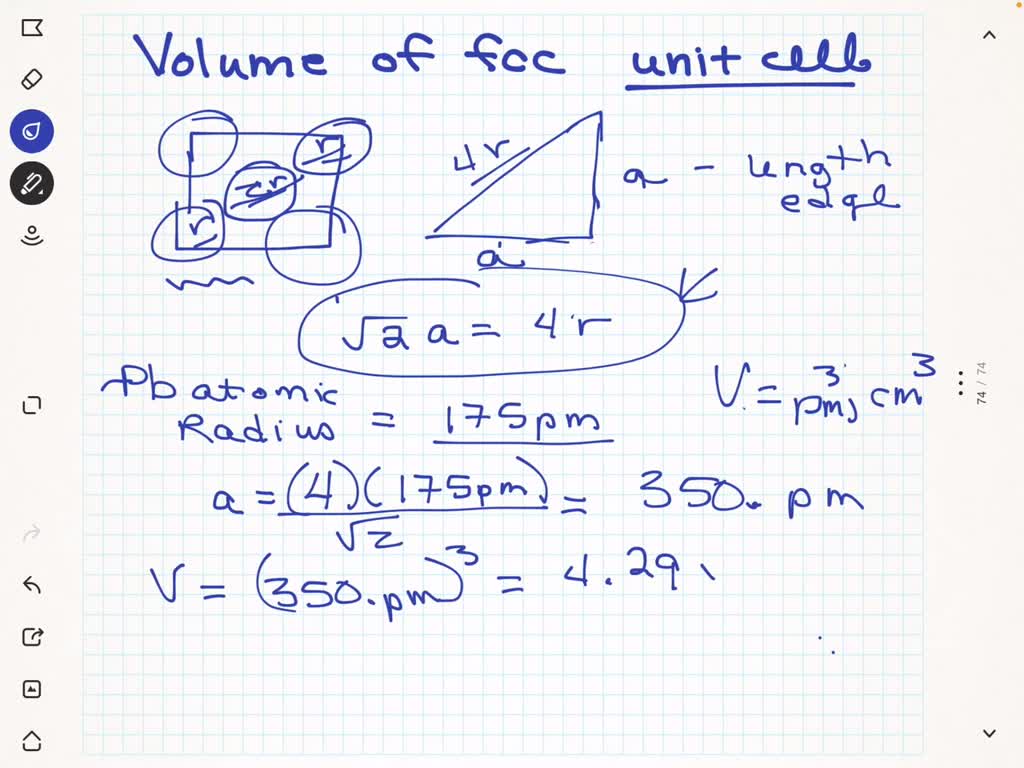 Volume of fcc unit cell
r
2r
r
4r
a
a - length
edge
√2 a = 4r
Pb atomic
Radius = 175pm
V = pm³, cm³
a = (4)(175pm) = 350. pm
√2
V = (350.pm)³ = 4.29
74 / 74